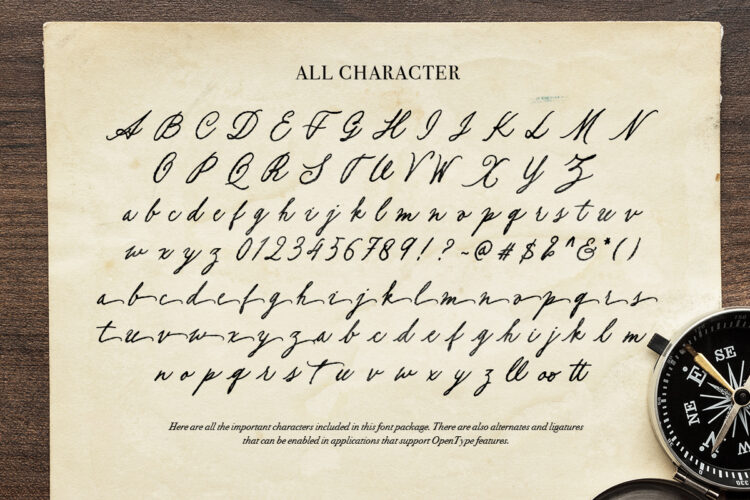 ALL CHARACTER
A B C D E F G H I J K L M N
O P Q R S T U V W X Y Z
a b c d e f g h i j k l m n o p q r s t u v
w x y z 0 1 2 3 4 5 6 7 8 9 ! ? ~ @ # $ % ^ & * ( )
a b c d e f g h i j k l m n o p q r s
t u v w x y z a b c d e f g h i j k l m
n o p q r s t u v w x y z ll oo tt
Here are all the important characters included in this font package. There are also alternates and ligatures
that can be enabled in applications that support OpenType features.
SE
E
NE
N